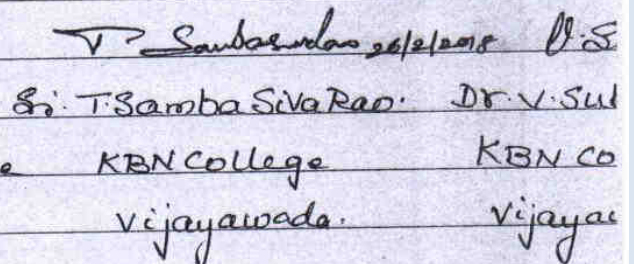 T Sambasivarao 26/2/2018 V.S
Sri. T. Samba Siva Rao. Dr. V. Sul
e KBN College KBN CO
Vijayawada. Vijaya